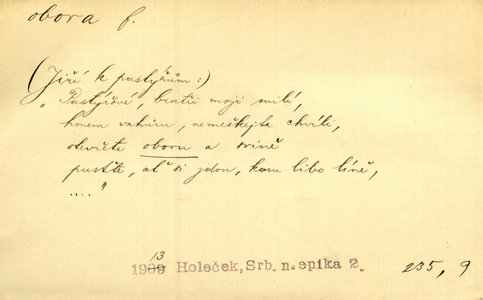 obora f.
(Jiří k pastýřům:)
„Pastýřové, bratři moji milí,
honem vzhůru, nemeškejte chvíli,
otevřete oboru a svině
pusťte, ať si jdou, kam libo líně,
...."
13
1909 Holeček, Srb. n. epika 2. 235, 9